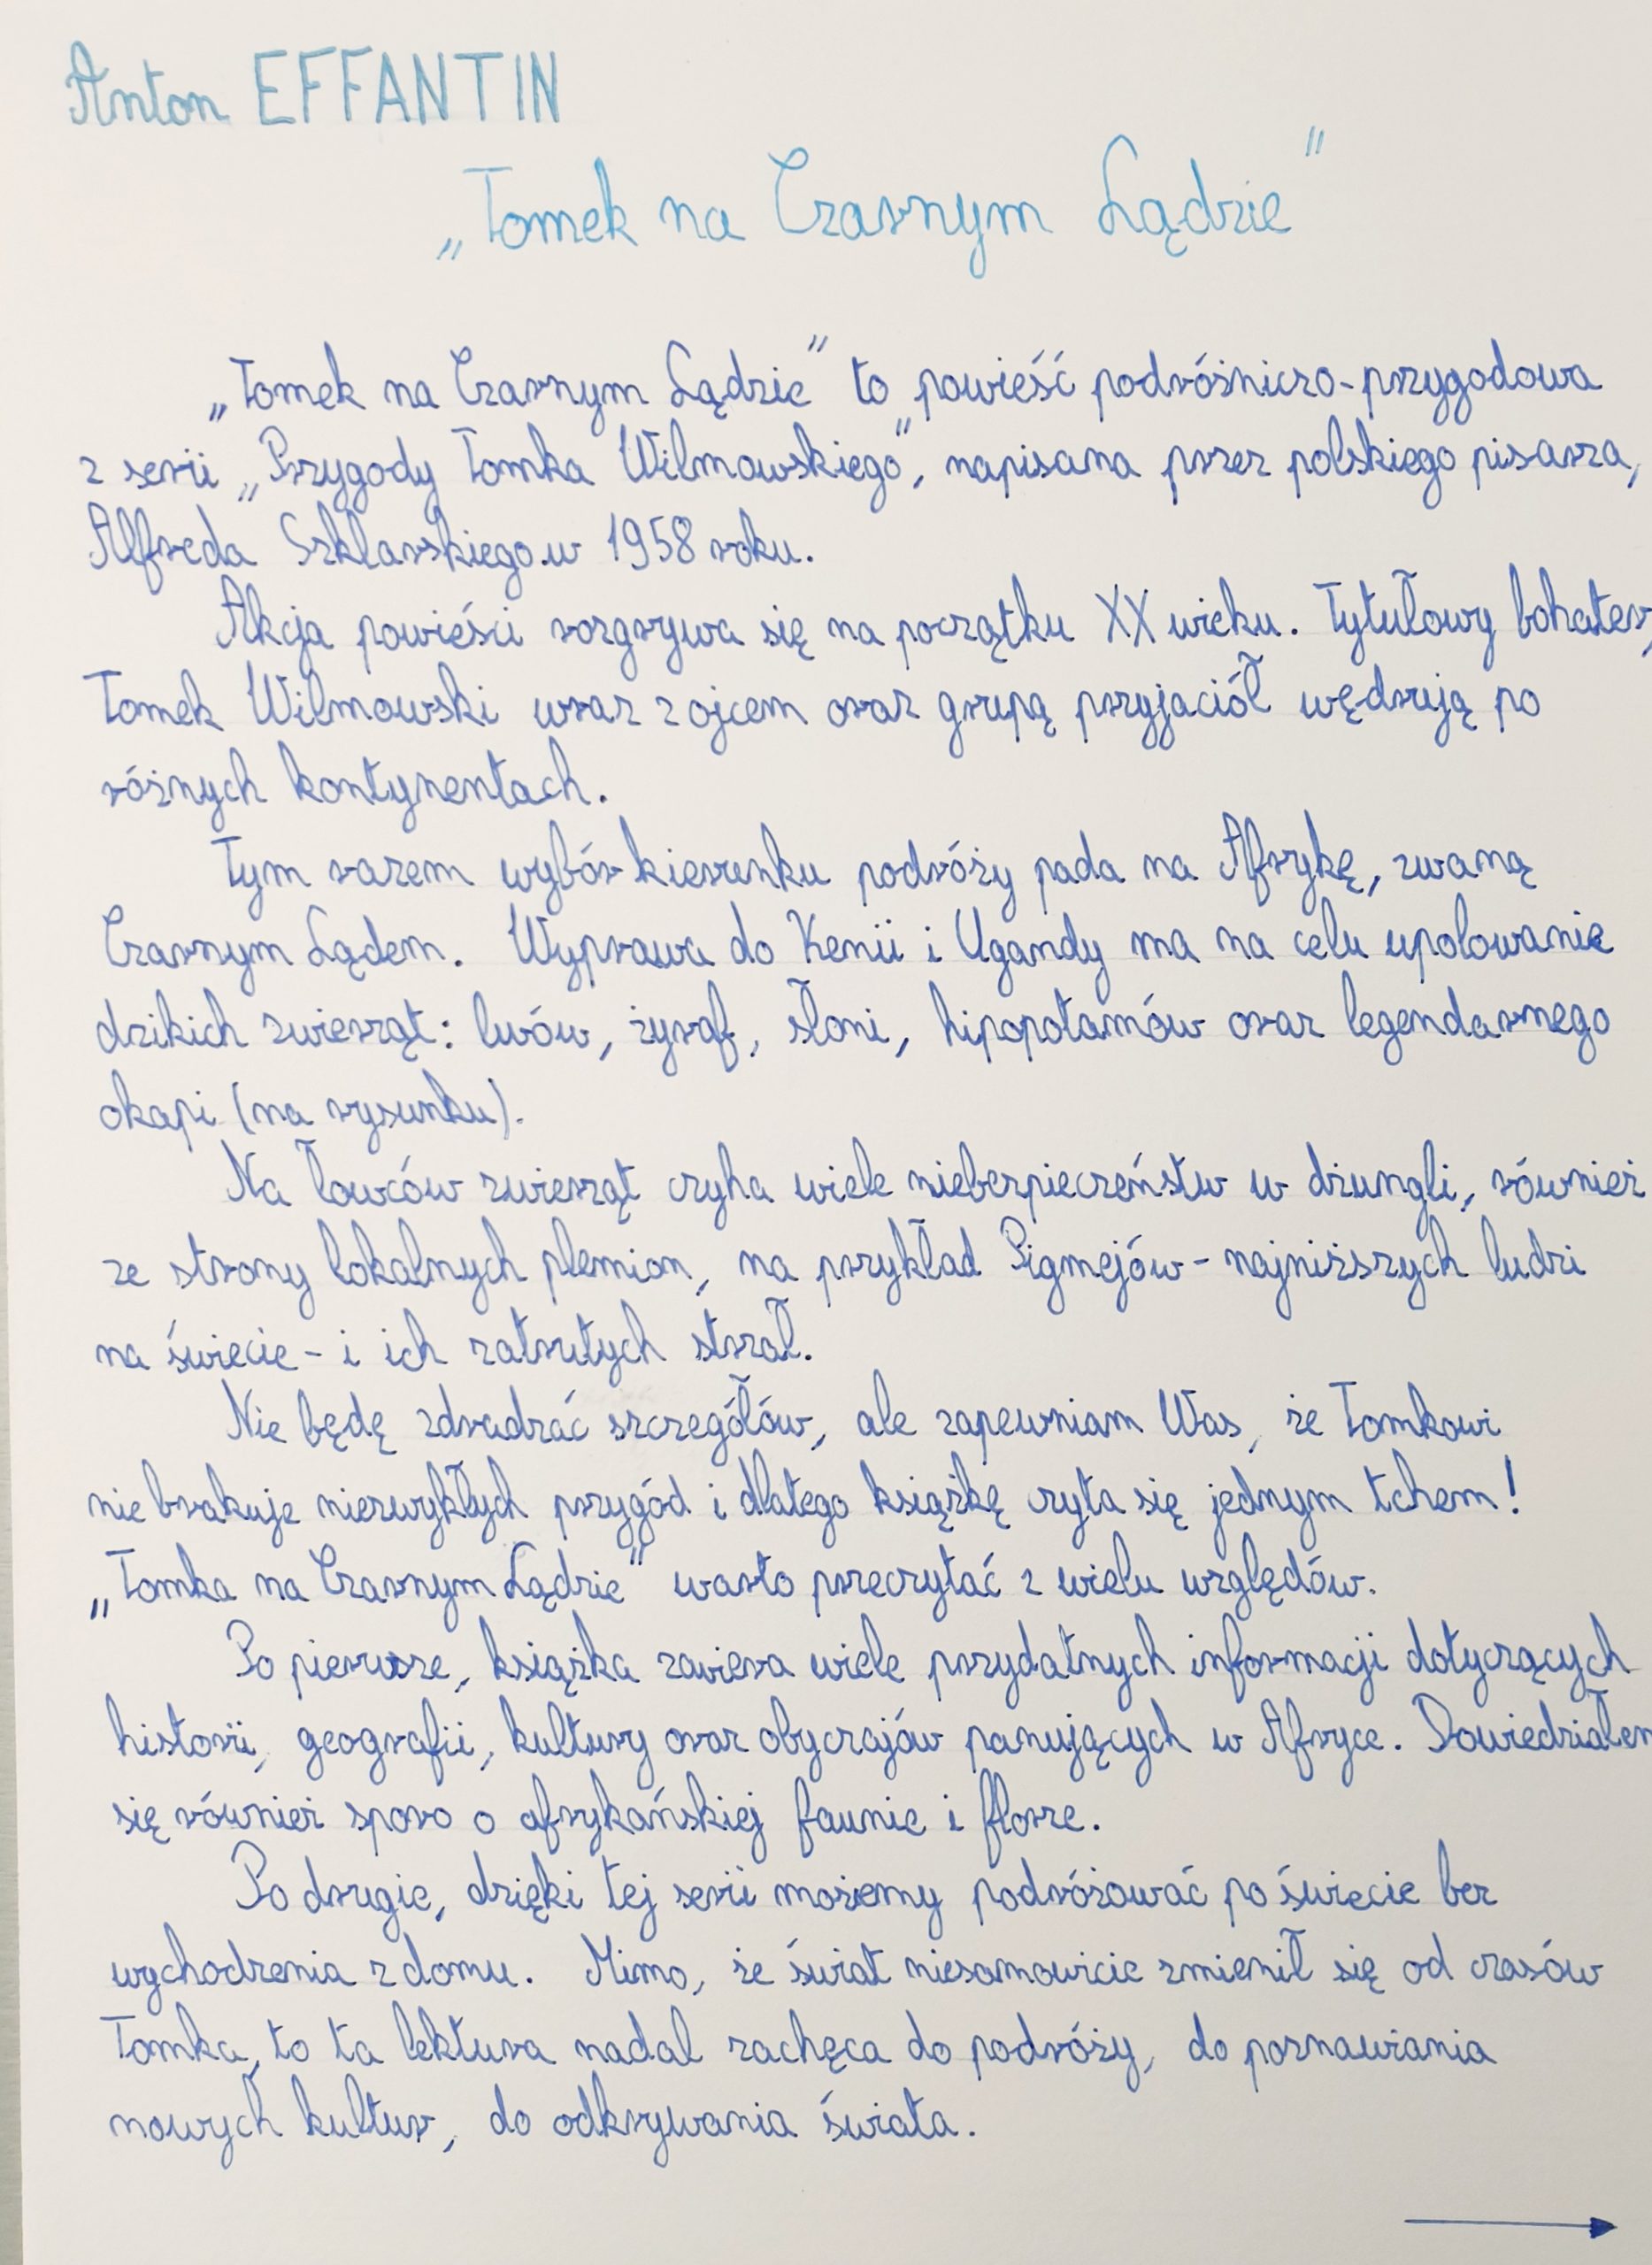 Anton EFFANTIN
„Tomek na Czarnym Lądzie"
„Tomek na Czarnym Lądzie" to powieść podróżniczo-przygodowa
z serii „Przygody Tomka Wilmowskiego", napisana przez polskiego pisarza,
Alfreda Szklarskiego w 1958 roku.
Akcja powieści rozgrywa się na początku XX wieku. Tytułowy bohater,
Tomek Wilmowski wraz z ojcem oraz grupą przyjaciół wędrują po
różnych kontynentach.
Tym razem wybór kierunku podróży pada na Afrykę, zwaną
Czarnym Lądem. Wyprawa do Kenii i Ugandy ma na celu upolowanie
dzikich zwierząt: lwów, żyraf, słoni, hipopotamów oraz legendarnego
okapi (na rysunku).
Na łowców zwierząt czyha wiele niebezpieczeństw w dżungli, również
ze strony lokalnych plemion, na przykład Pigmejów - najniższych ludzi
na świecie - i ich zatrutych strzał.
Nie będę zdradzać szczegółów, ale zapewniam Was, że Tomkowi
nie brakuje niezwykłych przygód i dlatego książkę czyta się jednym tchem!
„Tomka na Czarnym Lądzie" warto przeczytać z wielu względów.
Po pierwsze, książka zawiera wiele przydatnych informacji dotyczących
historii, geografii, kultury oraz obyczajów panujących w Afryce. Dowiedziałem
się również sporo o afrykańskiej faunie i florze.
Po drugie, dzięki tej serii możemy podróżować po świecie bez
wychodzenia z domu. Mimo, że świat niesamowicie zmienił się od czasów
Tomka, to ta lektura nadal zachęca do podróży, do poznawiania
nowych kultur, do odkrywania świata.